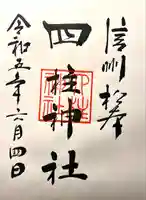 信州松本
四柱神社
令和五年六月四日